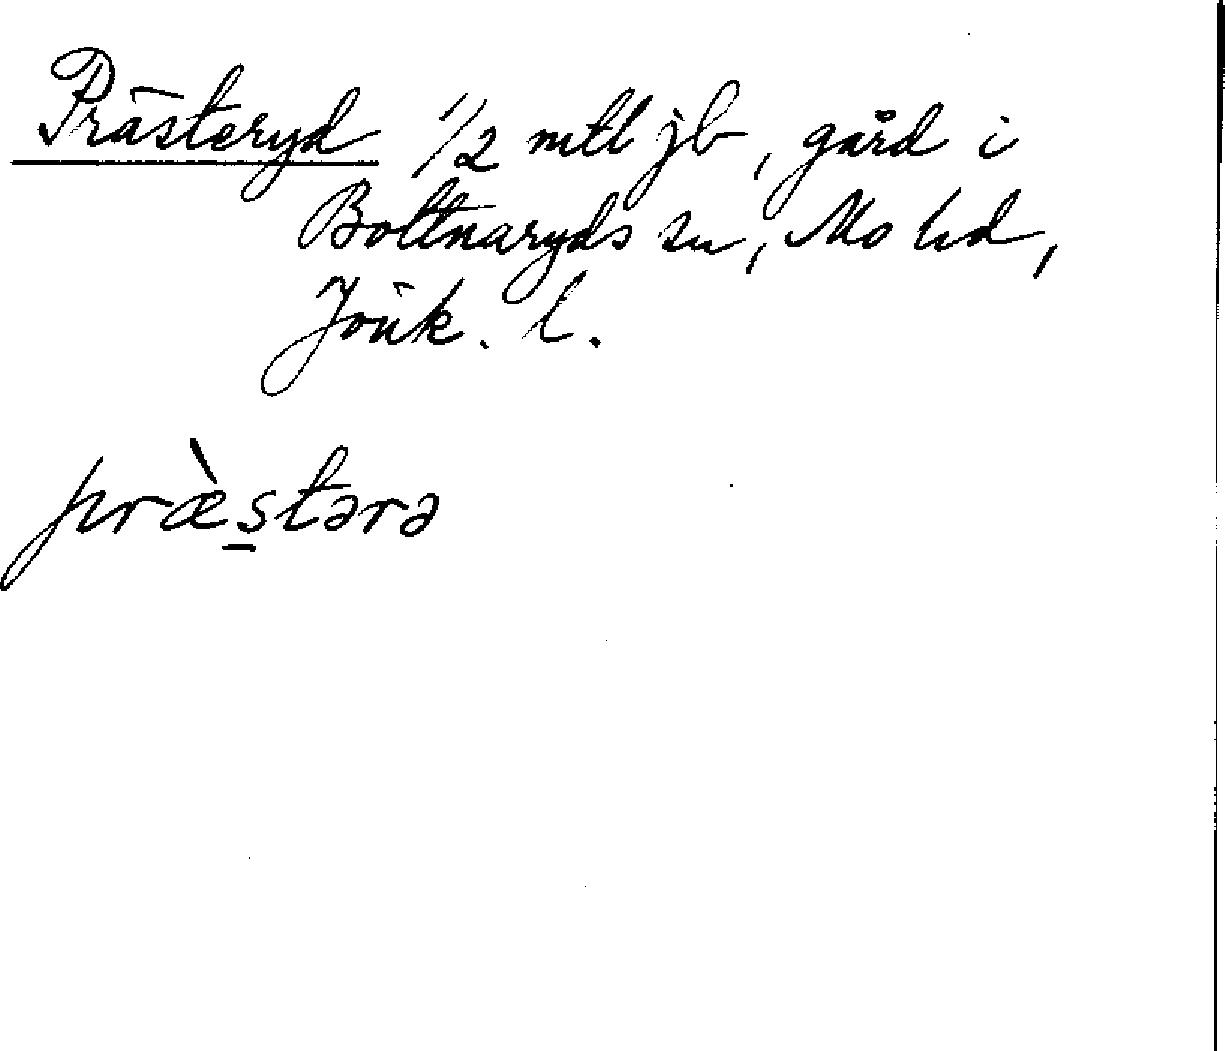 Prästeryd 1/2 mtl jb, gård i
Bottnaryds sn, Mo hd,
Jönk. l.
præ̀s̠tərə